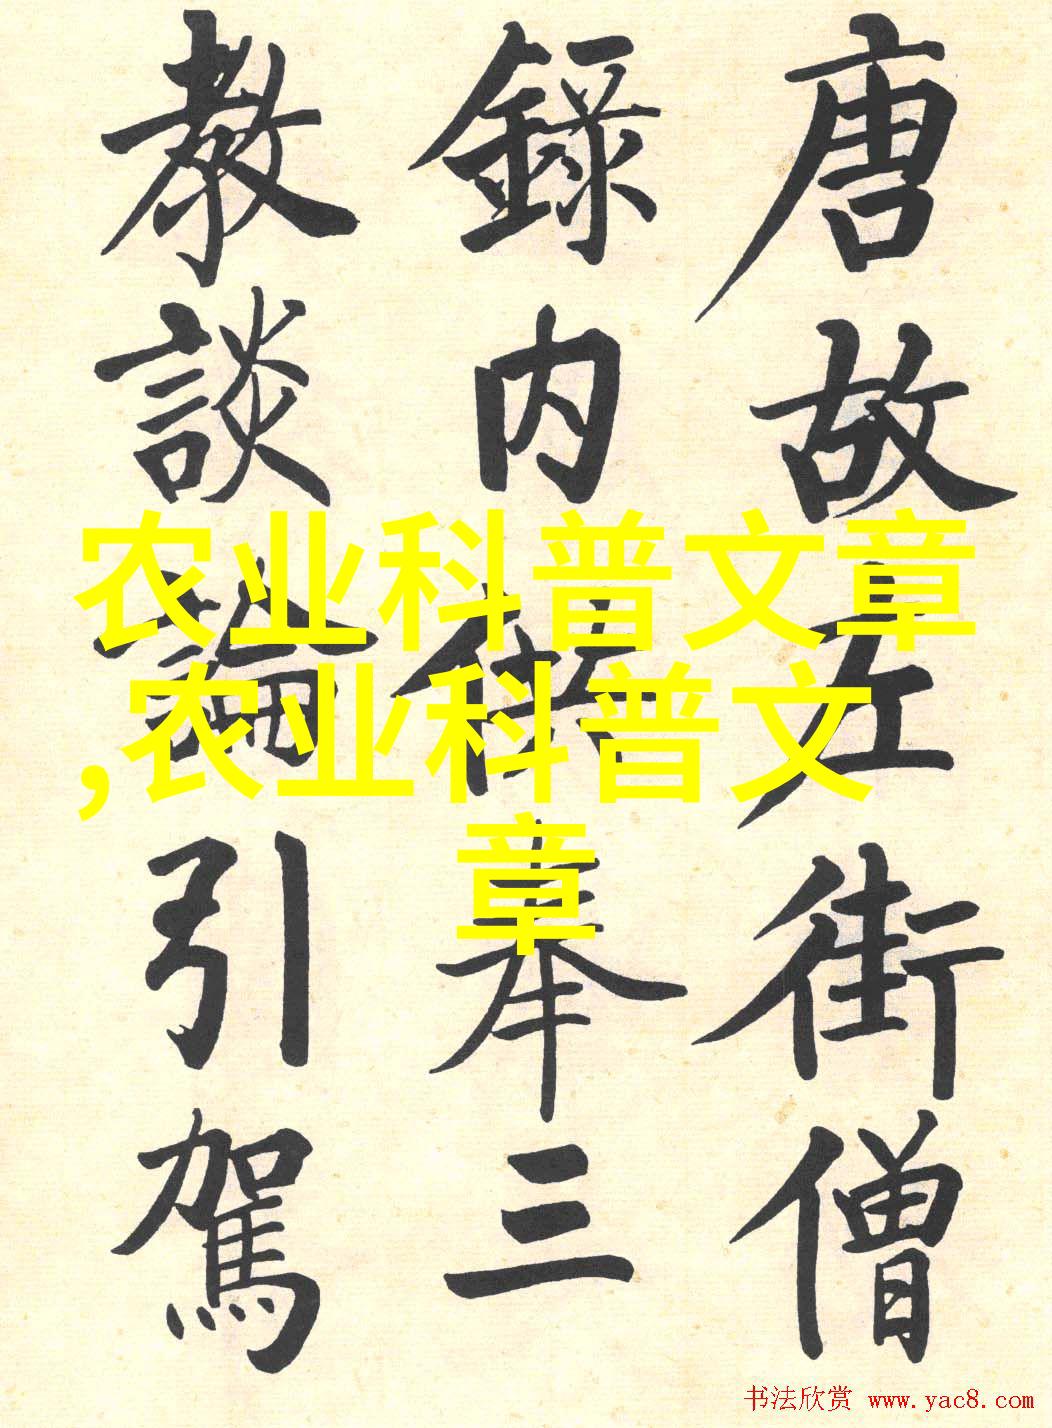 唐故左街僧
録内供奉三
教談論引駕
农业科普文章
,农业科普文
章
书法欣赏 www.yac8.com